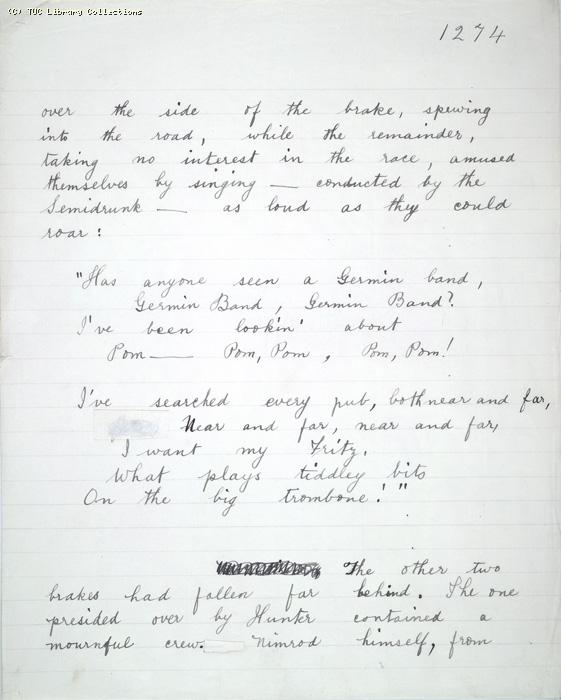 (C) TUC Library Collections
1274
over the side of the brake, spewing
into the road, while the remainder,
taking no interest in the race, amused
themselves by singing — conducted by the
Semidrunk — as loud as they could
roar:
"Has anyone seen a Germin band,
Germin Band, Germin Band?
I've been lookin' about
Pom — Pom, Pom, Pom, Pom!
I've searched every pub, both near and far,
Near and far, near and far,
I want my Fritz,
What plays tiddley bits
On the big trombone!"
The other two
brakes had fallen far behind. The one
presided over by Hunter contained a
mournful crew. Nimrod himself, from